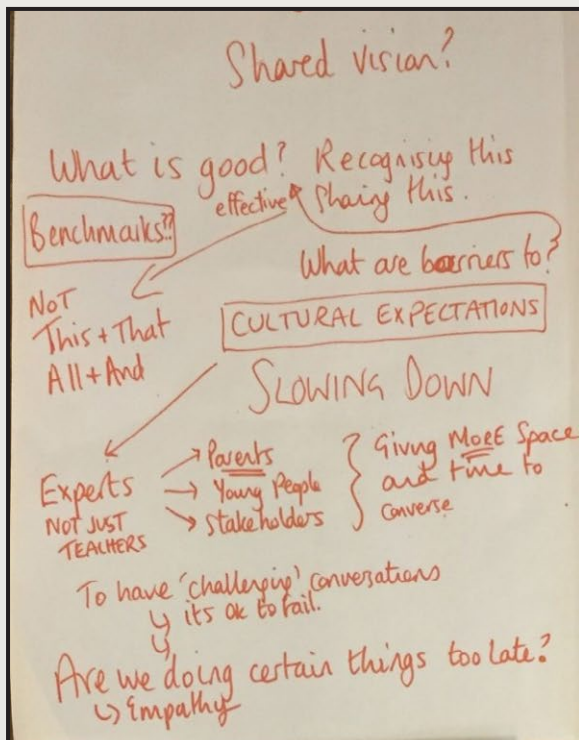 Shared vision?
What is good? Recognising this
effective sharing this.
Benchmarks??
What are barriers to?
NOT
This + That
All + And
CULTURAL EXPECTATIONS
SLOWING DOWN
Experts
NOT JUST
TEACHERS
Parents
Young People
Stakeholders
Giving MORE Space
and time to
converse
To have 'challenging' conversations
its ok to fail.
Are we doing certain things too late?
Empathy